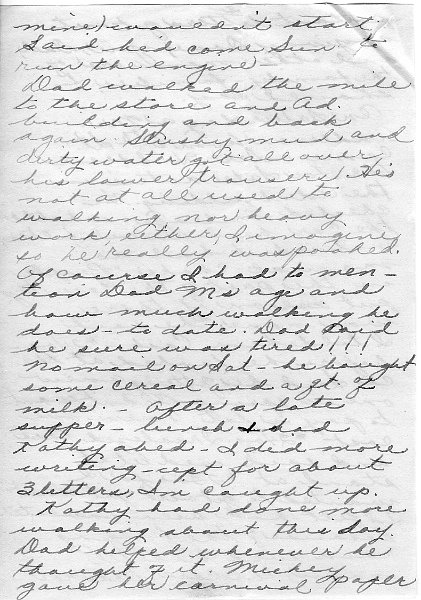 mine) wouldn't start.
Said he'd come Sun. to
run the engine
Dad walked the mile
to the store and Ad.
building and back
again. Slushy mud and
dirty water got all over
his lower trousers. He's
not at all used to
walking nor heavy
work, either, I imagine
so he really was pooped.
Of course I had to men-
tion Dad M's age and
how much walking he
does - to date. Dad said
he sure was tired!!!
No mail on Sat - he bought
some cereal and a pt. of
milk. - After a late
supper - lunch I had
Kathy abed - I did more
writing - cept for about
3 letters, I'm caught up.
Kathy had done more
walking about this day.
Dad helped whenever he
thought of it. Mickey
gave her carnival paper